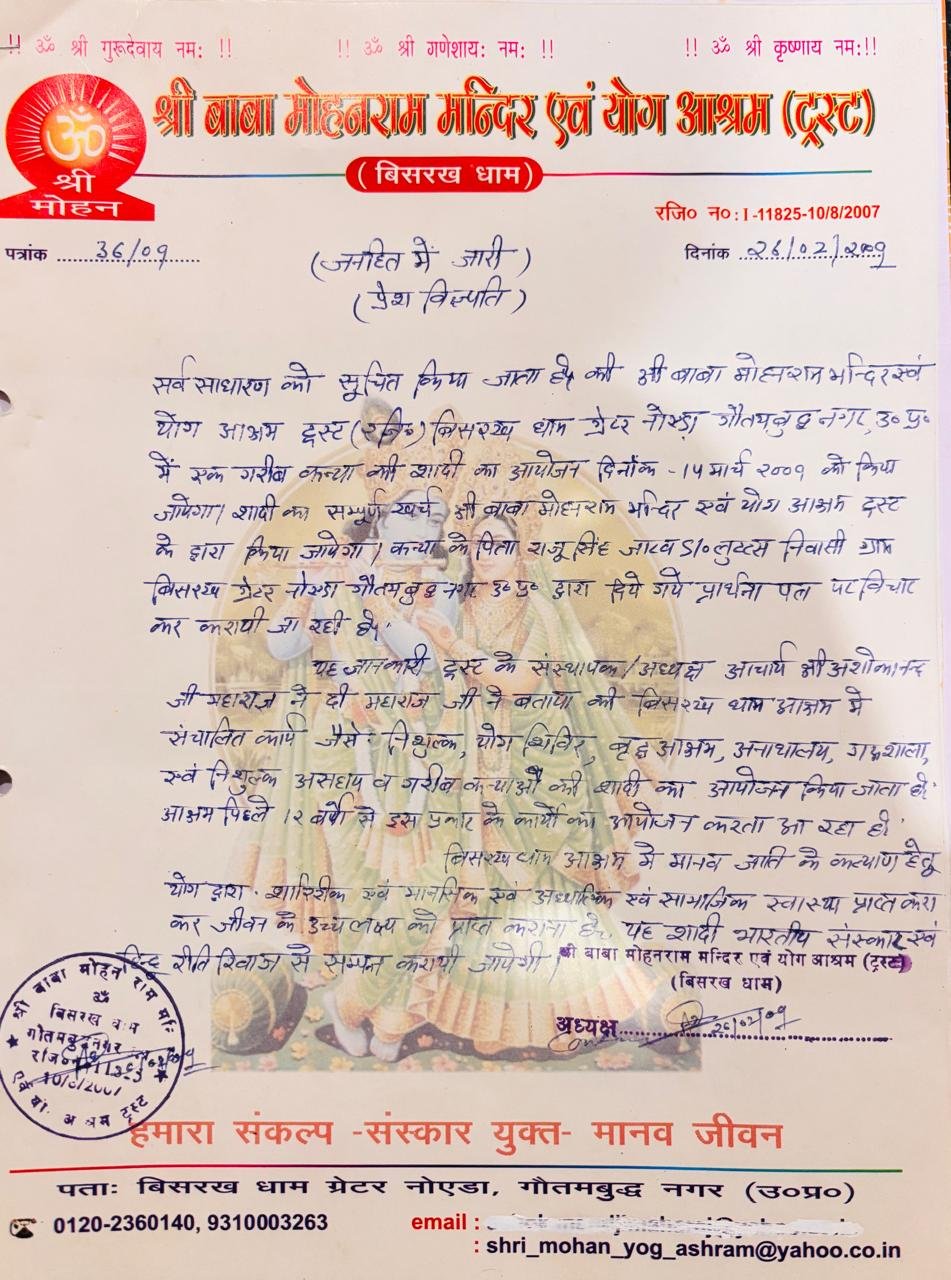 !! ॐ श्री गुरूदेवाय नमः !! !! ॐ श्री गणेशायः नमः !! !! ॐ श्री कृष्णाय नमः!!
ॐ
श्री
मोहन
श्री बाबा मोहनराम मन्दिर एवं योग आश्रम (ट्रस्ट)
( बिसरख धाम )
रजि० न० : I -11825-10/8/2007
पत्रांक 36/09 दिनांक 26/02/2009
(जनहित में जारी)
(प्रेश विज्ञप्ति)
सर्व साधारण को सूचित किया जाता है की श्री बाबा मोहनराम मन्दिर एवं
योग आश्रम ट्रस्ट (रजि०) बिसरख धाम ग्रेटर नोएडा गौतमबुद्ध नगर, उ० प्र०
में एक गरीब कन्या की शादी का आयोजन दिनाँक -14 मार्च 2009 को किया
जायेगा। शादी का सम्पूर्ण खर्च श्री बाबा मोहनराम मन्दिर एवं योग आश्रम ट्रस्ट
के द्वारा किया जायेगा। कन्या के पिता राजू सिंह जाटव S/o निवासी ग्राम
बिसरख ग्रेटर नोएडा गौतमबुद्ध नगर उ० प्र० द्वारा दिये गये प्रार्थना पत्र पर विचार
कर करायी जा रही है।
यह जानकारी ट्रस्ट के संस्थापक/अध्यक्ष आचार्य श्री अशोकानन्द
जी महाराज ने दी महाराज जी ने बताया की बिसरख धाम आश्रम में
संचालित कार्य जैसे निशुल्क, योग शिविर, वृद्ध आश्रम, अनाथालय, गऊशाला,
एवं निशुल्क असहाय व गरीब कन्याओं की शादी का आयोजन किया जाता है।
आश्रम पिछले 12 वर्षों से इस प्रकार के कार्यों का आयोजन करता आ रहा है।
बिसरख धाम आश्रम में मानव जाति के कल्याण हेतू
योग द्वारा शारिरीक एवं मानसिक एवं अध्यात्मिक एवं सामाजिक स्वास्था प्राप्त करा
कर जीवन के उच्च लक्ष्य को प्राप्त कराना है, यह शादी भारतीय संस्कार एवं
हिन्दू रीति रिवाज से सम्पन्न करायी जायेगी।
श्री बाबा मोहनराम मन्दिर एवं योग आश्रम (ट्रस्ट)
(बिसरख धाम)
अध्यक्ष 26/02/09
श्री बाबा मोहन राम
ॐ
बिसरख धाम
गौतमबुद्धनगर
आश्रम ट्रस्ट
हमारा संकल्प -संस्कार युक्त- मानव जीवन
पताः बिसरख धाम ग्रेटर नोएडा, गौतमबुद्ध नगर (उ०प्र०)
0120-2360140, 9310003263 email :
: shri_mohan_yog_ashram@yahoo.co.in